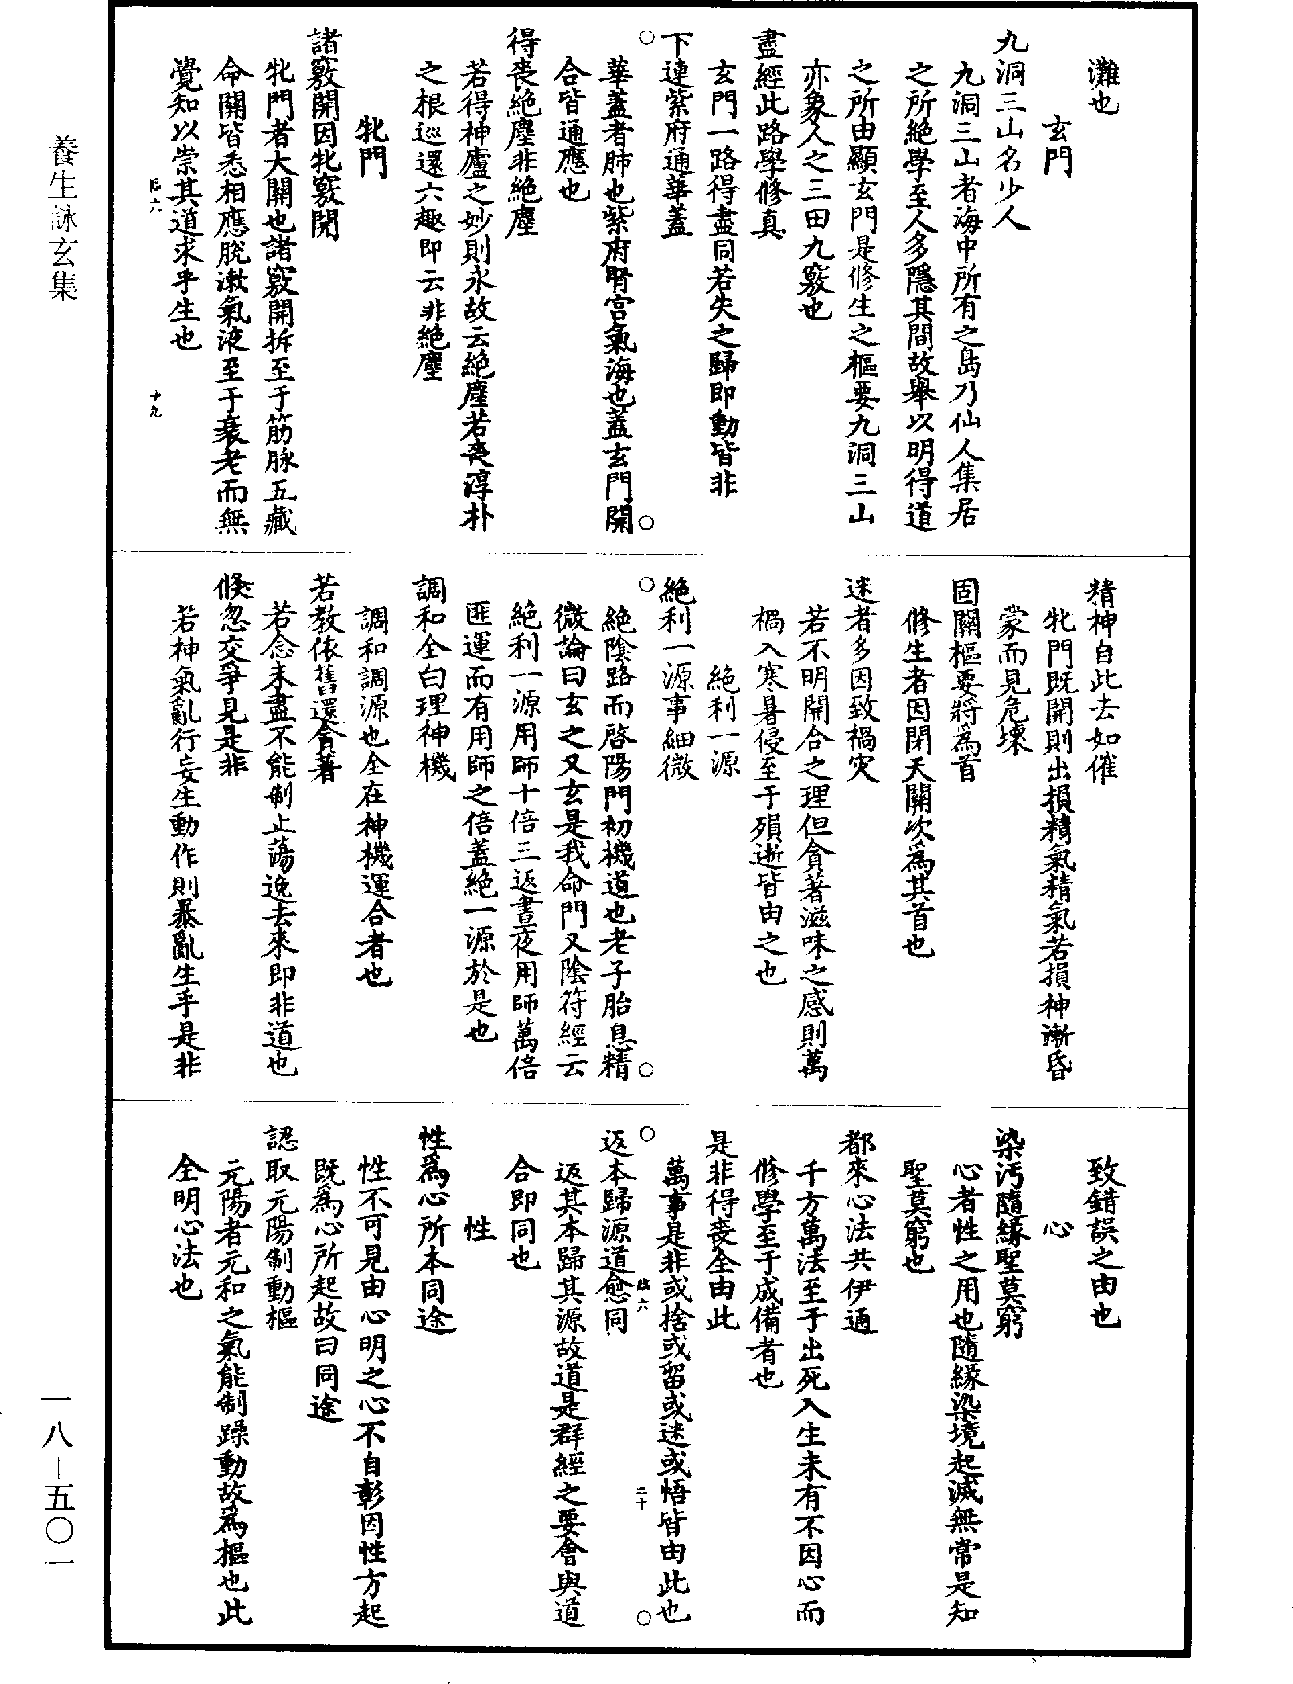 灘也
玄門
九洞三山名少人
九洞三山者海中所有之島乃仙人集居
之所絶學至人多隱其間故舉以明得道
之所由顯玄門是修生之樞要九洞三山
亦象人之三田九竅也
盡經此路學修真
玄門一路得盡同若失之歸即動皆非
下連紫府通華蓋
華蓋者肺也紫府腎宫氣海也蓋玄門開
合皆通應也
得喪絶塵非絶塵
若得神廬之妙則永故云絶塵若喪淳朴
之根巡還六趣即云非絶塵
牝門
諸竅開因牝竅開
牝門者大開也諸竅開拆至于筋脉五藏
命關皆悉相應脱漱氣液至于衰老而無
覺知以崇其道求乎生也
精神自此去如催
牝門既開則出損精氣精氣若損神漸昏
蒙而見危壞
固關樞要將為首
修生者因閉天關次為其首也
迷者多因致禍灾
若不明開合之理但貪著滋味之感則萬
禍入寒暑侵至于殞逝皆由之也
絶利一源
絶利一源事細微
絶陰路而啓陽門初機道也老子胎息精
微論曰玄之又玄是我命門又陰符經云
絶利一源用師十倍三返晝夜用師萬倍
匪運而有用師之倍蓋絶一源於是也
調和全白理神機
調和調源也全在神機運合者也
若教依舊還貪著
若念未盡不能制止蕩逸去來即非道也
倐忽交爭見是非
若神氣亂行妄生動作則暴亂生乎是非
致錯誤之由也
心
染汚隨緣聖莫窮
心者性之用也隨緣染境起滅無常是知
聖莫窮也
都來心法共伊通
千方萬法至于出死入生未有不因心而
修學至于成備者也
是非得喪全由此
萬事是非或捨或留或迷或悟皆由此也
返本歸源道愈同
返其本歸其源故道是群經之要會與道
合即同也
性
性為心所本同途
性不可見由心明之心不自彰因性方起
既為心所起故曰同途
認取元陽制動樞
元陽者元和之氣能制躁動故為樞也此
全明心法也
養生詠玄集
一八—五〇一
十九
二十